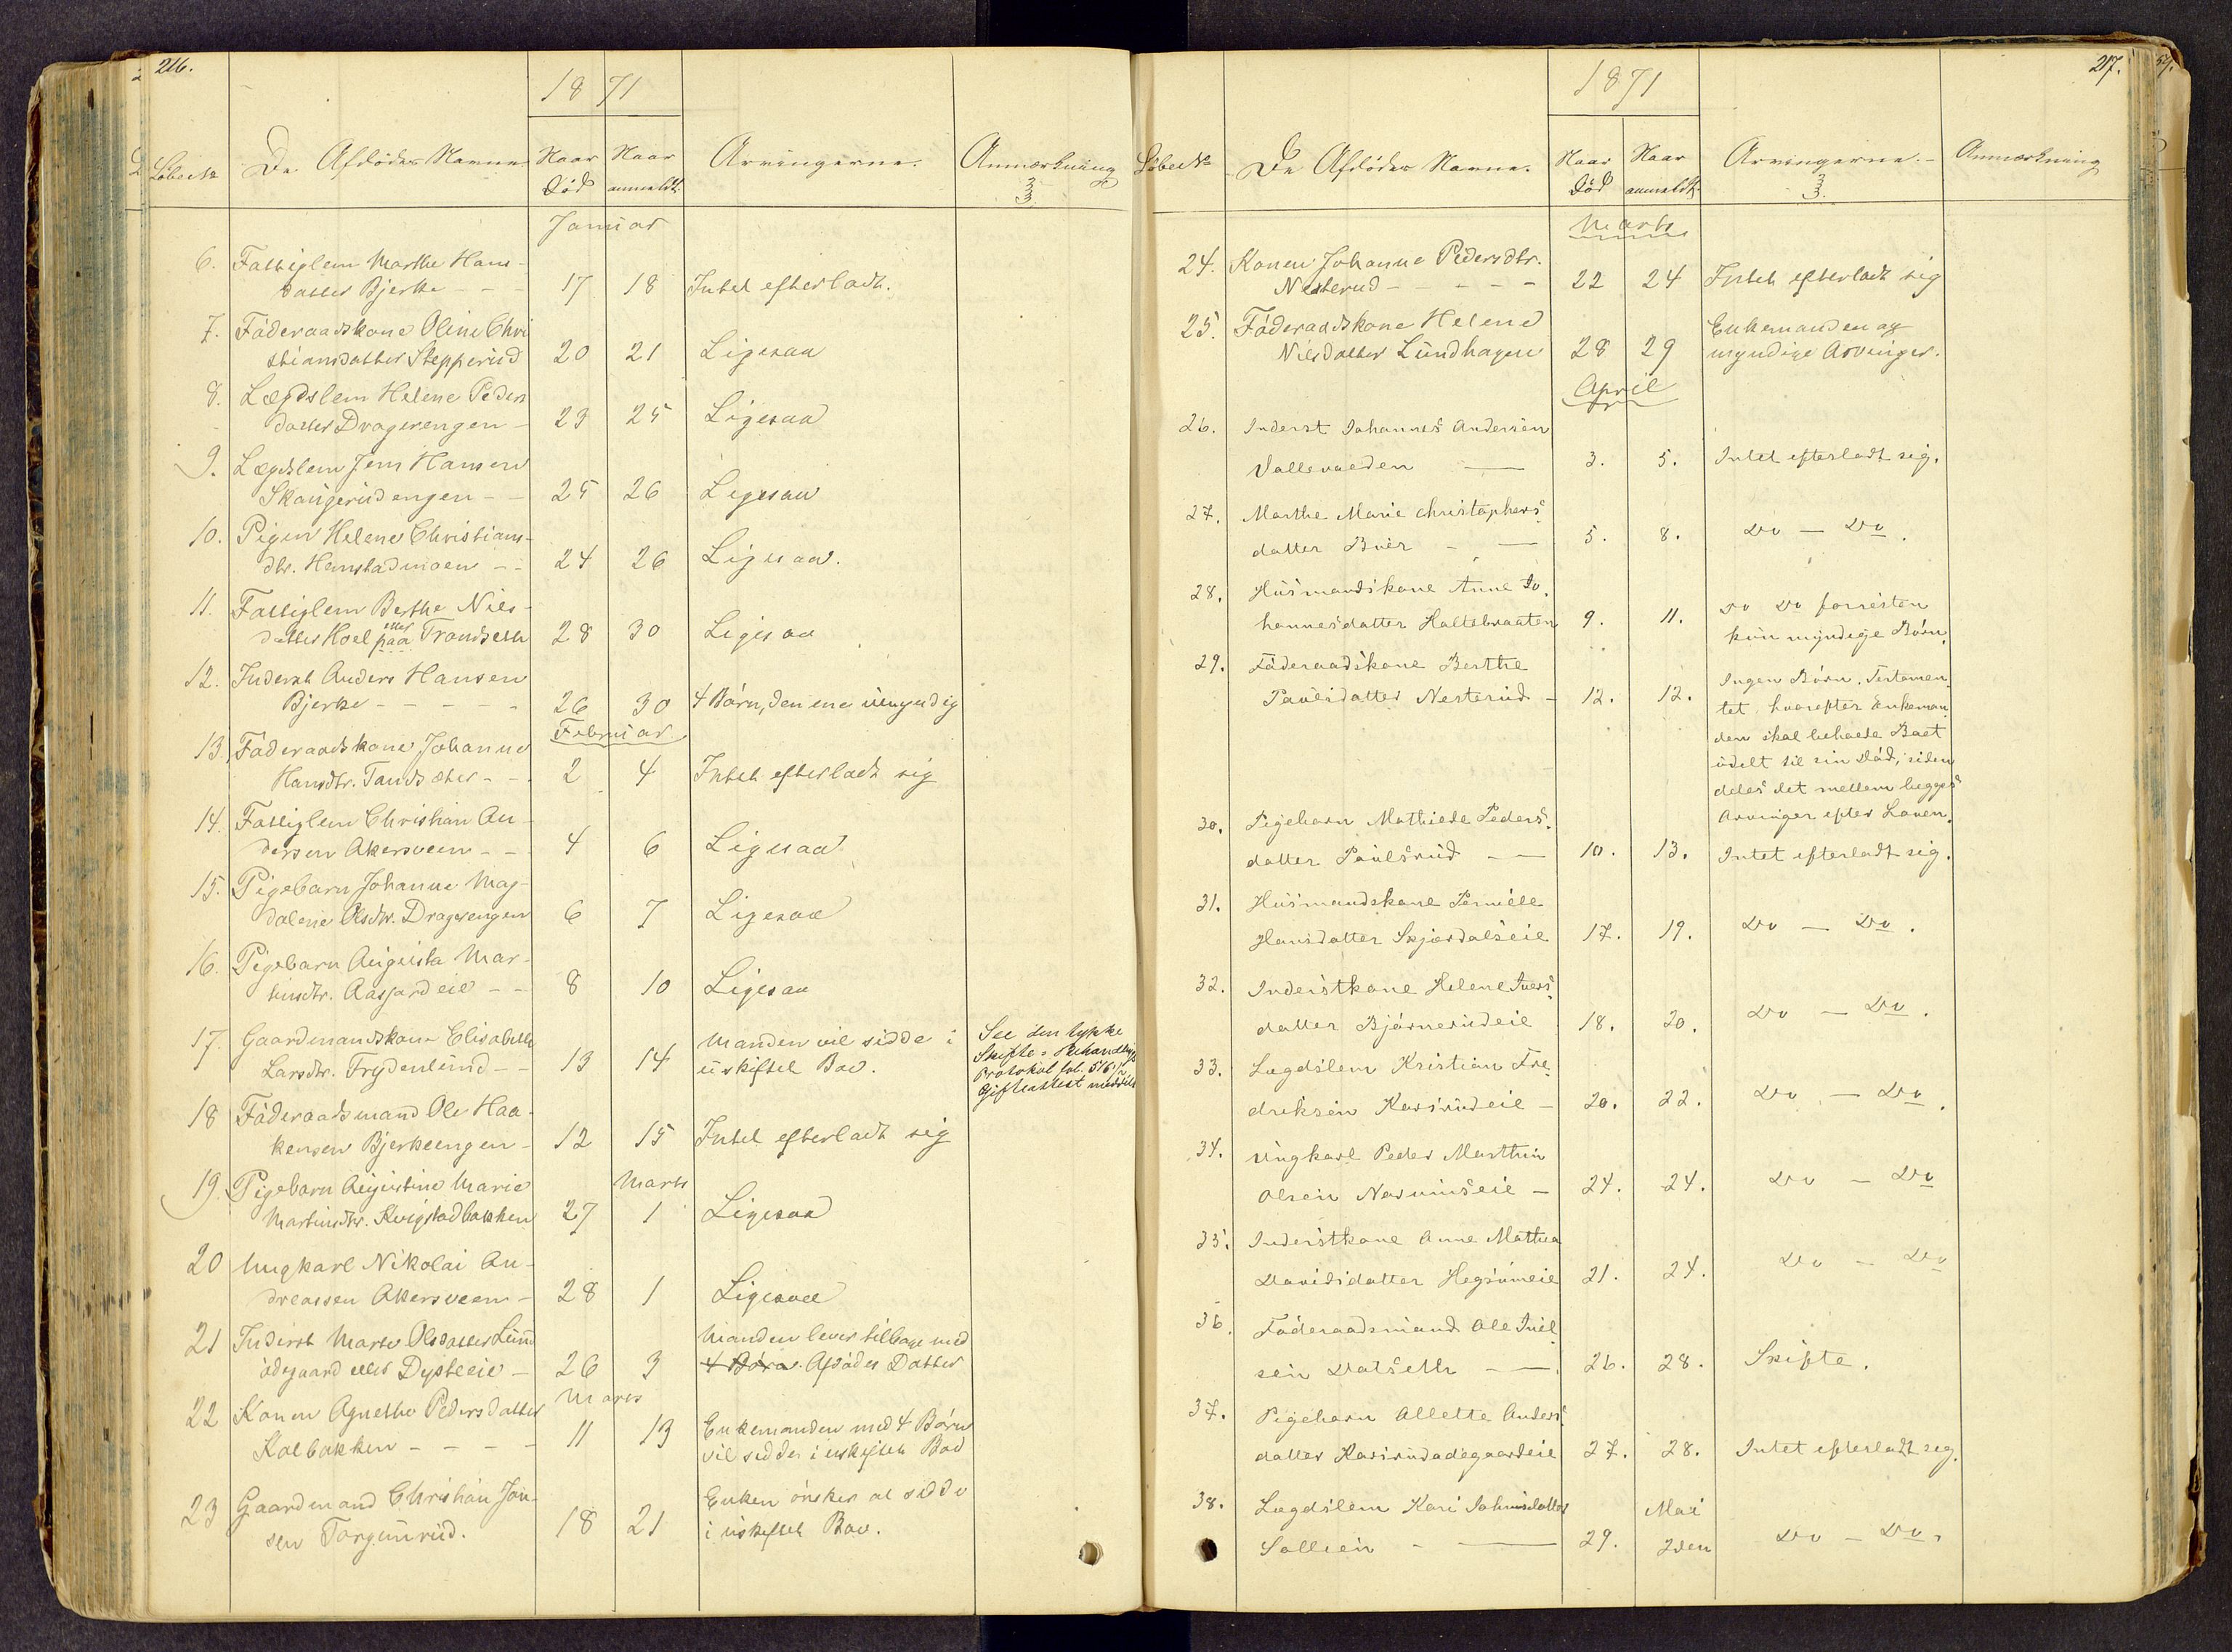 216.
1871
Löbe№ De Afdödes Navne Naar Död Naar anmeldt. Arvingerne. Anmærkning
Januar
6. Fattiglem Marthe Hans-
datter Bjerke - - - 17 18 Intet efterladt.
7. Föderaadskone Oline Chri
stiansdatter Stepperud 20 21 Ligesaa
8. Lægdslem Helene Peders
datter Dragerengen - 23 25 Ligesaa
9. Lægdslem Jens Hansen
Skaugerudengen - - 25 26 Ligesaa
10. Pigen Helene Christians-
dtr. Hemstadmoen - - 24 26 Ligesaa.
11. Fattiglem Berthe Niels-
datter Hoel eller paa Trondseth 28 30 Ligesaa
12. Inderst Anders Hansen
Bjerke - - - - - 26 30 4 Börn, den ene umyndig
Februar
13. Föderaadskone Johanne
Hansdtr. Tandsæter - - 2 4 Intet efterladt sig
14. Fattiglem Christian An-
dersen Akersveen - - 4 6 Ligesaa
15. Pigebarn Johanne Mag-
dalene Olsdtr. Dragerengen 6 7 Ligesaa
16. Pigebarn Augusta Mar-
tinsdtr. Aasgardeie - - 8 10 Ligesaa
17. Gaardmandskone Elisabeth
Larsdtr. Frydenlund - - 13 14 Manden vil sidde i
uskiftet Bo.
See den trykte
Skifte-Behandlings
Protokol fol. 516.
Gifteattest meddelt
18 Föderaadsmand Ole Haa-
kensen Bjerkeengen - 12 15 Intet efterladt sig
19. Pigebarn Augustine Marie Marts
Martinsdtr. Kvigstadbakken 27 1 Ligesaa
20 Ungkarl Nikolai An-
dreassen Akersveen - 28 1 Ligesaa
21 Inderst Marte Olsdatter Lund
ödegaard eller Dysteeie - 26 3 Manden lever tilbage med
4 Börn. Afdödes Datter
Marts
22 Konen Agnethe Pedersdatter
Kolbakken - - - - 11 13 Enkemanden med 4 Börn
vil sidde i uskiftet Bo
23 Gaardmand Christian Jon-
sen Torgunrud. 18 21 Enken önsker at sidde
i uskiftet Bo.
217.
1871
Löbe№ De Afdödes Navne. Naar Död Naar anmeldt. Arvingerne.- Anmærkning
Marts
24. Konen Johanne Pedersdtr.
Nesterud - - - - - 22 24 Intet efterladt sig
25. Föderaadskone Helene
Nilsdatter Lundhagen 28 29 Enkemanden og
myndige Arvinger.
April
26. Inderst Johannes Andersen
Vallevaeden — 3. 5. Intet efterladt sig.
27. Marthe Marie Christophers-
datter Buer - — 5. 8. Do — Do.
28. Husmandskone Anne Jo-
hannesdatter Haltebraaten 9. 11. Do Do forresten
kun myndige Börn.
29. Föderaadskone Berthe
Paulsdatter Nesterud - 12. 12. Ingen Börn. Testamen-
tet hvorefter Enkeman-
den skal beholde Boet
udelt til sin Död, siden
deles det mellem begges
Arvinger efter Loven.
30. Pigebarn Mathilde Peders-
datter Paulsrud — 10. 13. Intet efterladt sig.
31. Husmandskone Pernille
Hansdatter Skjærdalseie 17. 19. Do — Do.
32. Inderstkone Helene Ivers-
datter Bjørnerudeie 18. 20. Do — Do.
33. Lægdslem Kristian Fre-
driksen Karsrudeie - 20. 22. Do — Do.
34. Ungkarl Peder Marthin
Olsen Narumseie - 24. 24. Do — Do
35. Inderstkone Anne Mathea
Davidsdatter Hegsumeie 21. 24. Do — Do
36. Föderaadsmand Ole Juel-
sen Dalseth — 26. 28. Skifte.
37. Pigebarn Allette Anders-
datter Karsrudødegaardeie 27. 28. Intet efterladt sig.
38. Lægdslem Kari Johnsdatter Mai
Sollien - — 29. 2den Do — Do.